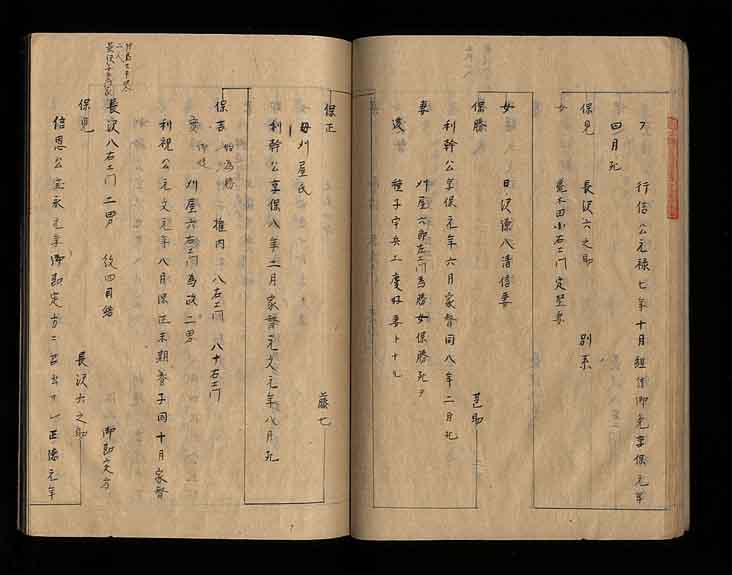 行信公元禄七年十月組付御免享保元年
四月死
保見 長沢六之助 別系
女 荒木田小右エ門定堅妻
女 日沢徳八清信妻
保勝 甚助
利幹公享保元年六月家督同八年二月死
妻 刈屋六郎左エ門為勝女保勝死ヲ
後 種子宇兵エ度好妻トナル
保正 藤七
母刈屋氏
利幹公享保八年二月家督元文元年八月死
保吉 始為勝 権内 八右エ門 八十右エ門
実 刈屋六右エ門為政二男
利視公元文元年八月保正末期養子同十月家督
長沢八右エ門二男 後四目結 御勘定方
保見 長沢六之助
信恩公宝永元年御勘定方ニ召出サル正徳元年